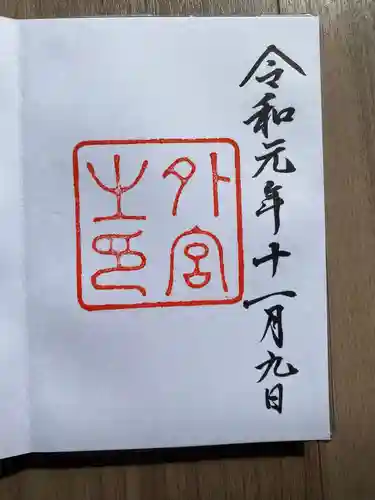 令和元年十一月九日
外宮
之印